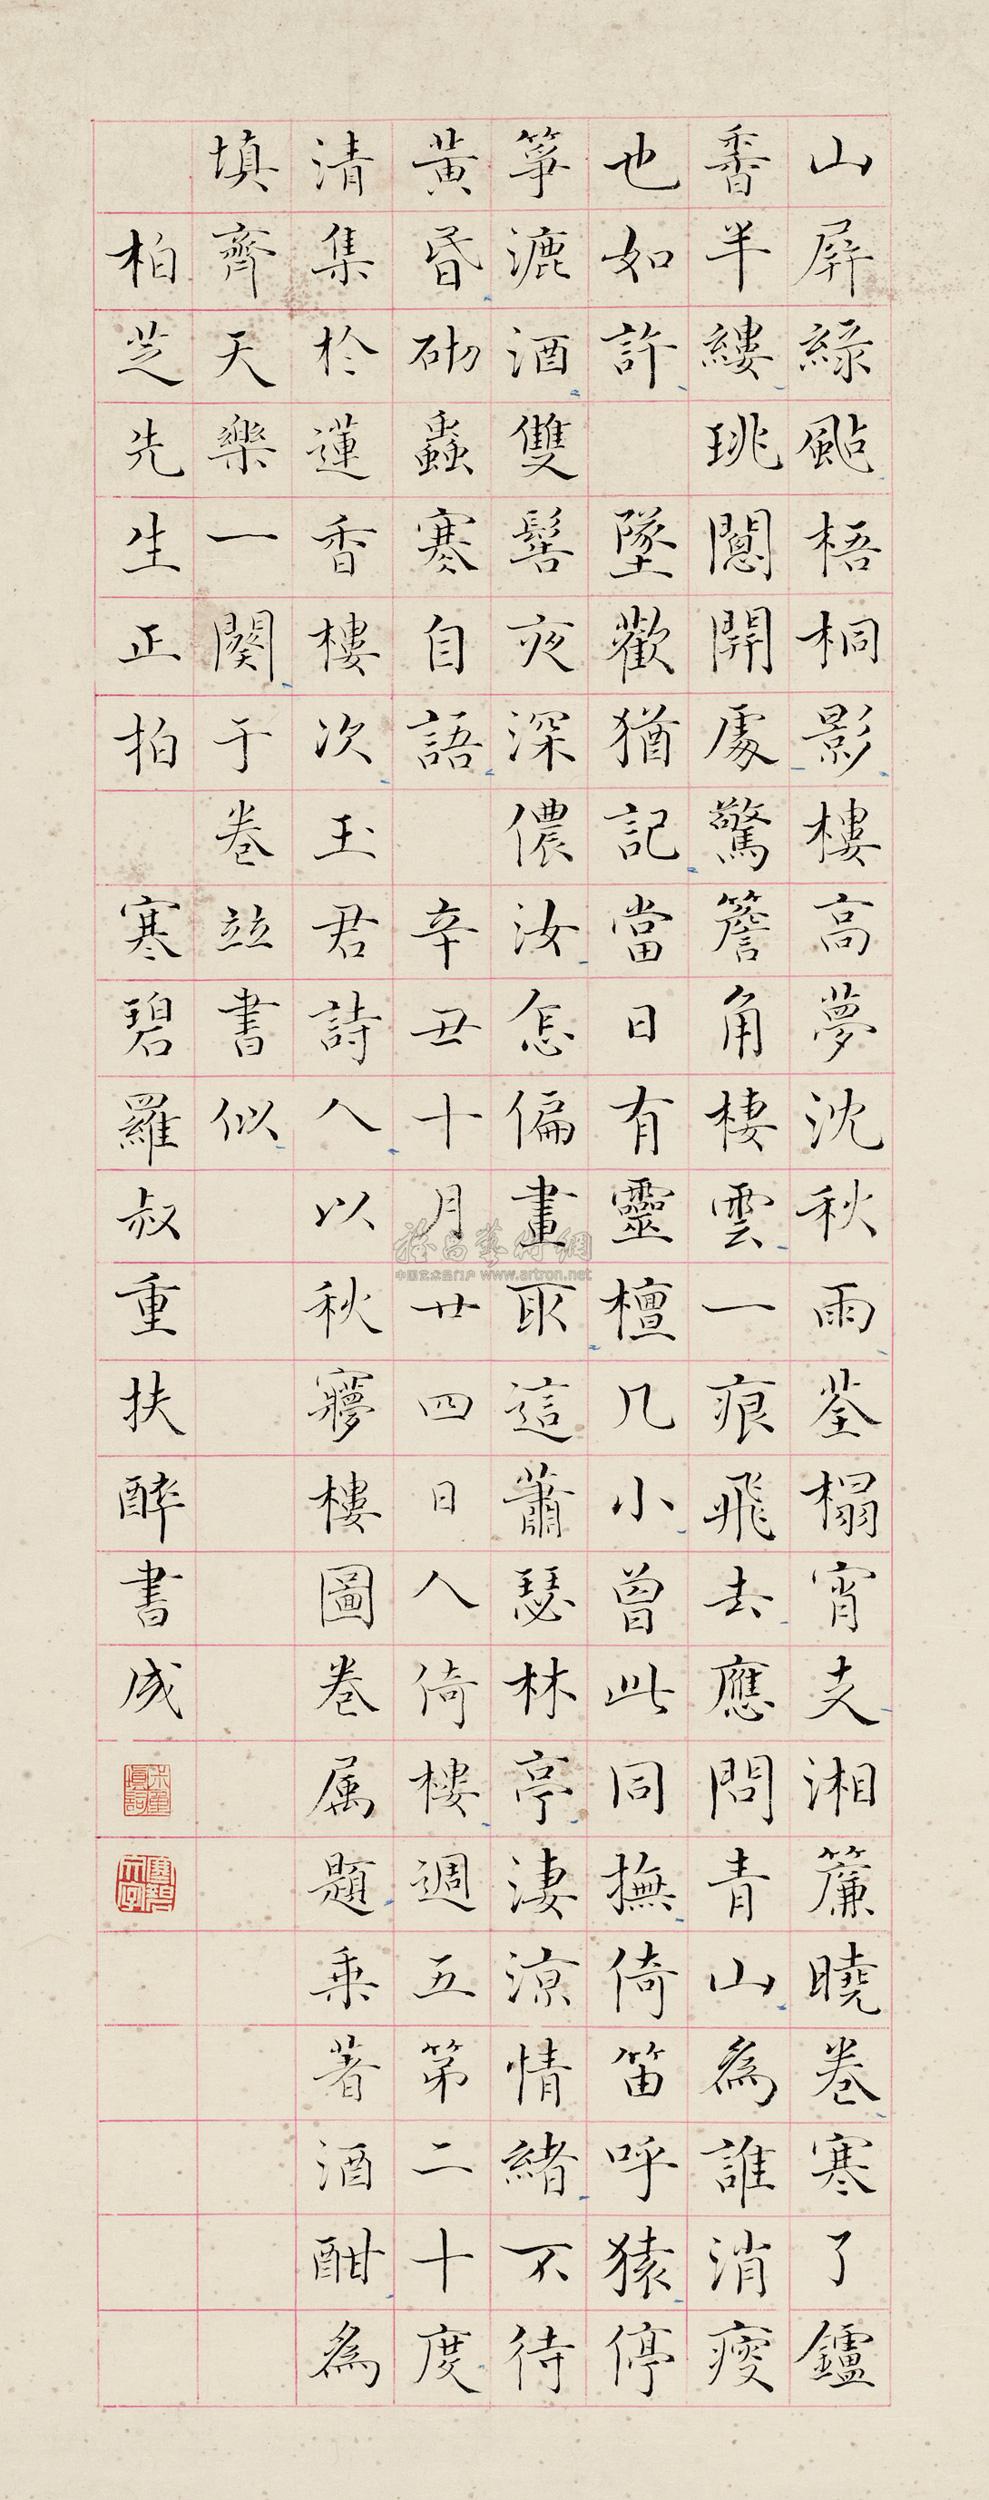 山屏綠颭梧桐影樓高夢沈秋雨荃榻宵支湘簾曉卷寒了鑪
香半縷珧闥開處驚簷角棲雲一痕飛去應問青山為誰消瘦
也如許　墜歡猶記當日有靈檀几小曾此同撫倚笛呼猿停
箏漉酒雙髻夜深儂汝怎偏畫取這蕭瑟林亭淒涼情緒不待
黃昏砌蟲寒自語　辛丑十月廿四日人倚樓週五第二十度
清集於蓮香樓次玉君詩人以秋寱樓圖卷属題乘著酒酣為
填齊天樂一闋于卷竝書似
柏芝先生正拍　寒碧羅叔重扶醉書成
中国艺术品门户 www.artron.net